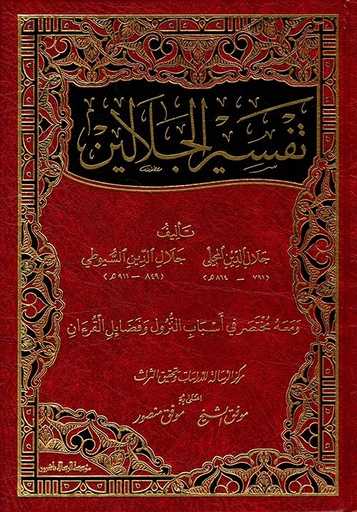 تفسير الجلالين
تأليف
جلال الدين المحلي جلال الدين السيوطي
(٧٩١ - ٨٦٤ هـ) (٨٤٩ - ٩١١ هـ)
ومعه مختصر في أسباب النزول وفضائل القرءان
مركز الرسالة للدراسات وتحقيق التراث
اعتنى به
موفق الشيخ موفق منصور
مؤسسة الرسالة ناشرون